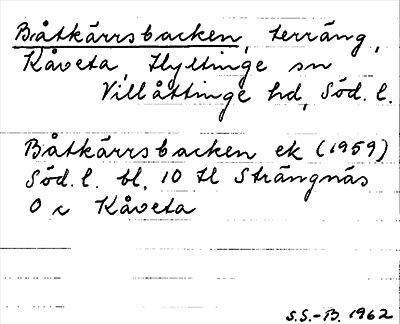 Båtkärrsbacken, terräng,
Kåveta, Hyltinge sn
Villåttinge hd, Söd. l.
Båtkärrsbacken ek (1959)
Söd. l. bl. 10 tl Strängnäs
O c Kåveta
S.S.-B. 1962